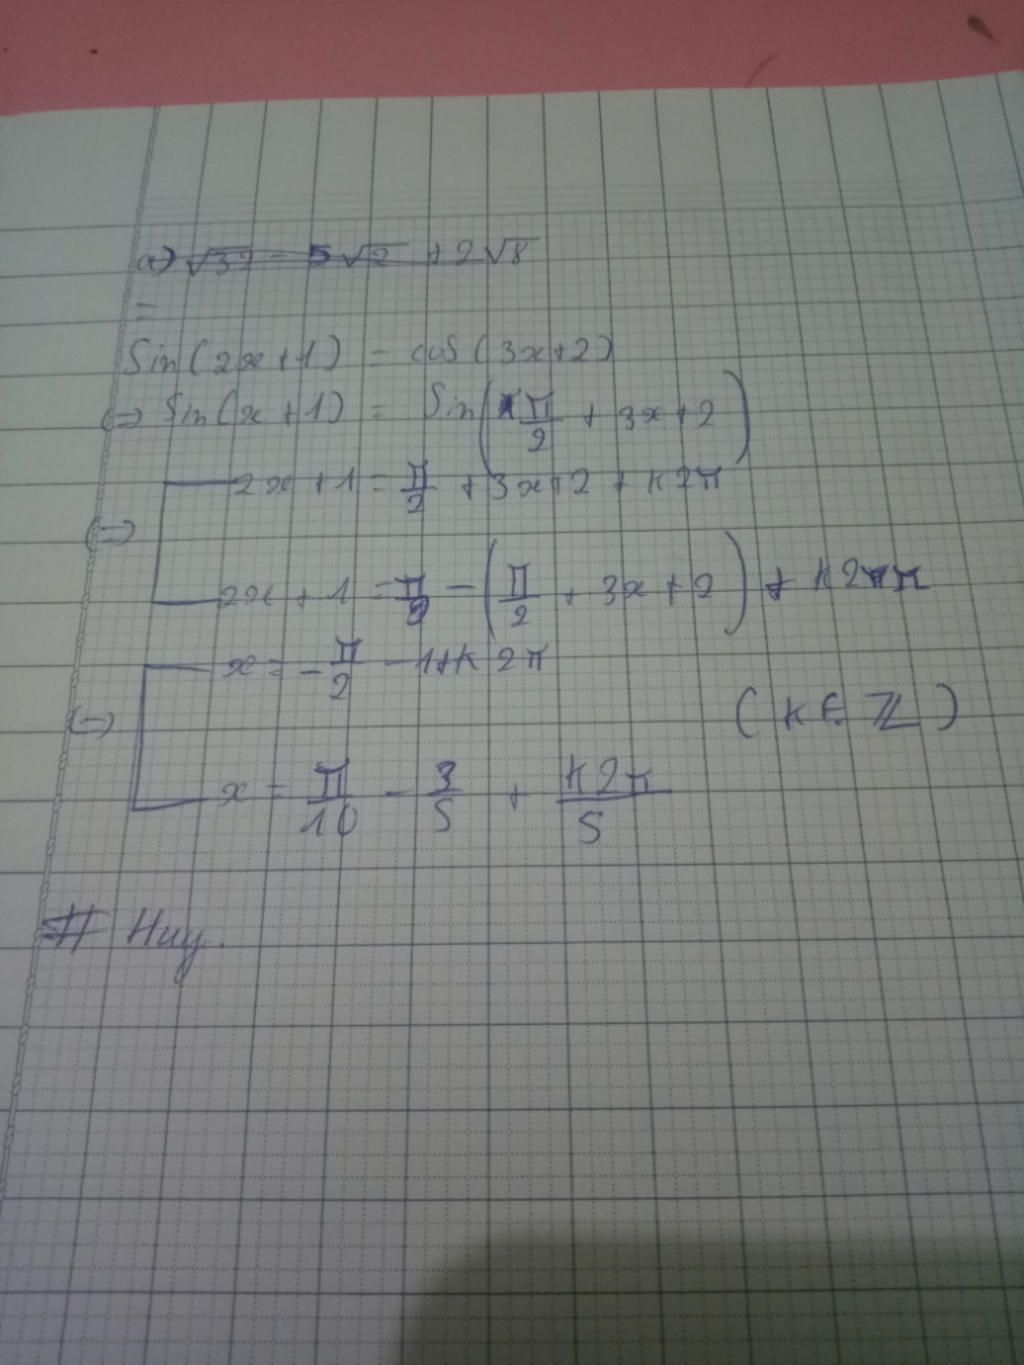 a) √32 - 5√2 + 2√8
=
Sin(2x+1) = cos(3x+2)
(=) Sin(x+1) = Sin(π/2 + 3x+2)
2x+1 = π/2 + 3x+2 + k2π
(=)
2x+1 = π - (π/2 + 3x+2) + k2π
x = -π/2 - 1+k2π
(k∈ℤ)
(=)
x = π/10 - 3/5 + k2π/5
# Huy.